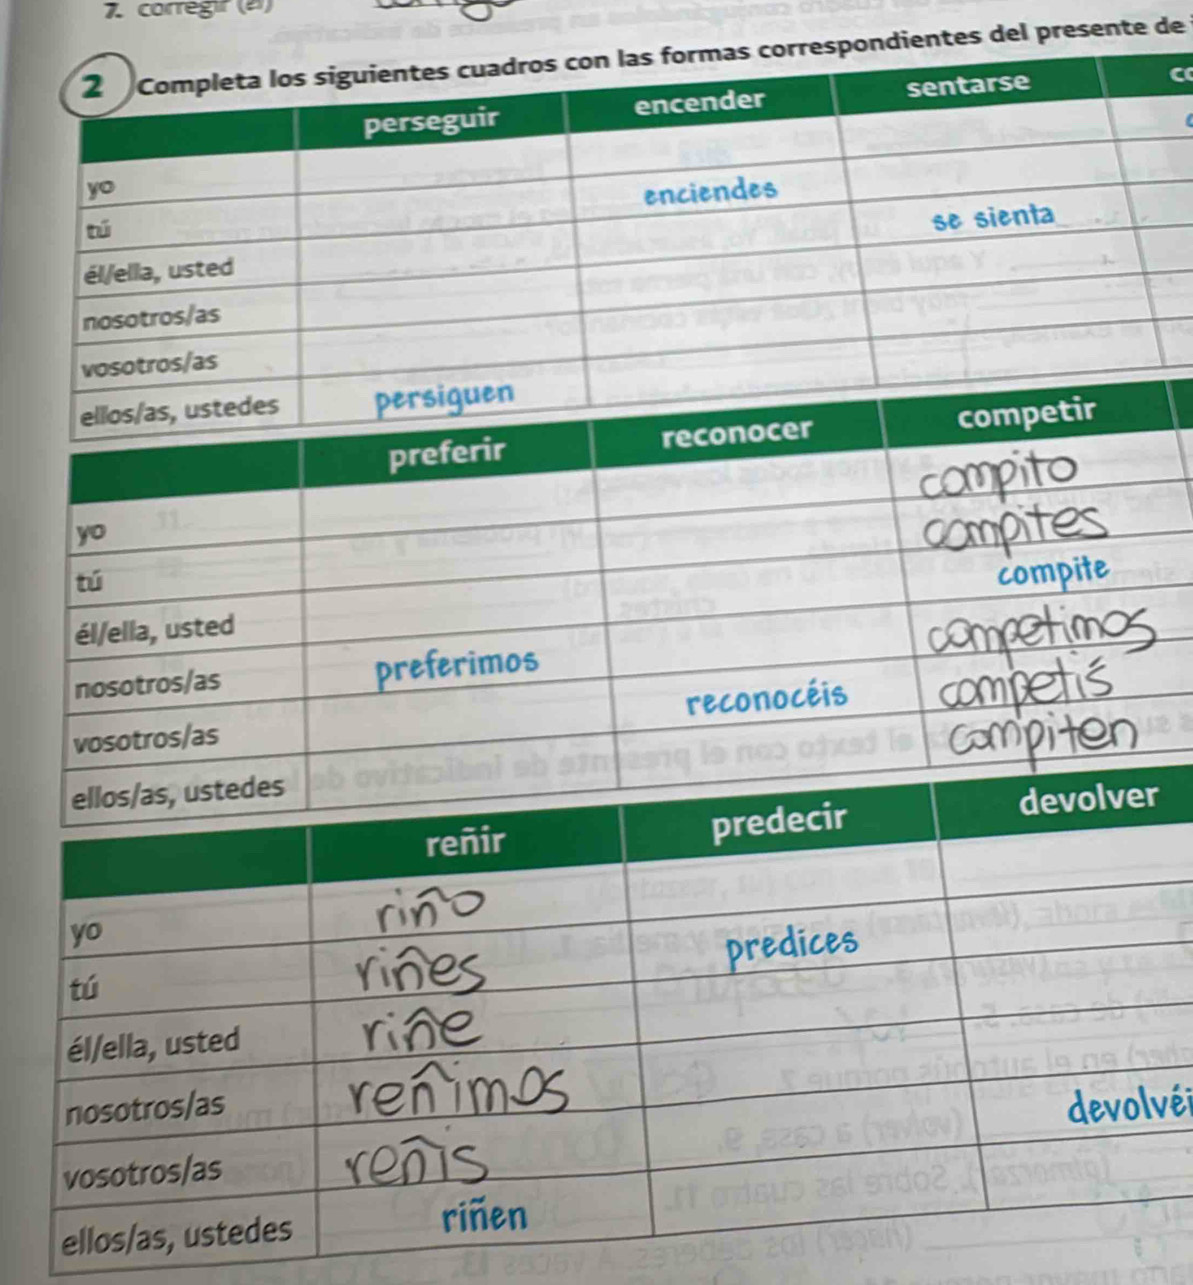 7. corregir (él)
2 Completa los siguientes cuadros con las formas correspondientes del presente de
perseguir encender sentarse
yo
tú enciendes
él/ella, usted se sienta
nosotros/as
vosotros/as
ellos/as, ustedes persiguen
preferir reconocer competir
yo compito
tú compites
él/ella, usted compite
nosotros/as preferimos competimos
vosotros/as reconocéis competís
ellos/as, ustedes compiten
reñir predecir devolver
yo riño
tú riñes predices
él/ella, usted riñe
nosotros/as reñimos
vosotros/as reñis devolvéi
ellos/as, ustedes riñen